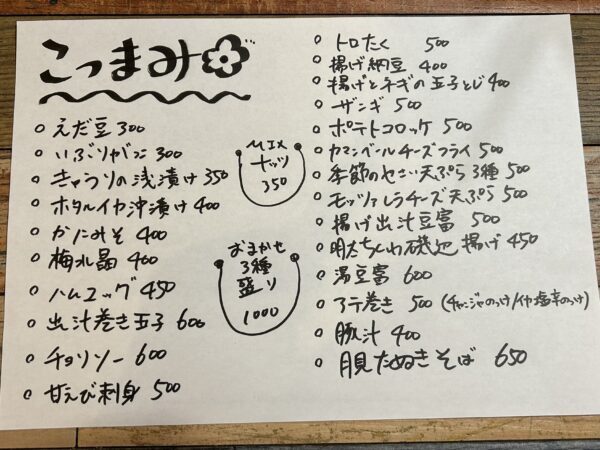 こつまみ
○ えだ豆 300
○ いぶりがっこ 300
○ きゅうりの浅漬け 350
○ ホタルイカ沖漬け 400
○ かにみそ 400
○ 梅水晶 400
○ ハムエッグ 450
○ 出汁巻き玉子 600
○ チョリソー 600
○ 甘えび刺身 500
MIX
ナッツ
350
おまかせ
3種
盛り
1000
○ トロたく 500
○ 揚げ納豆 400
○ 揚げとネギの玉子とじ 400
○ ザンギ 500
○ ポテトコロッケ 500
○ カマンベールチーズフライ 500
○ 季節のやさい天ぷら 3種 500
○ モッツァレラチーズ天ぷら 500
○ 揚げ出汁豆富 500
○ 明太ちくわ磯辺揚げ 450
○ 湯豆富 600
○ アテ巻き 500 (チャンジャのっけ/イカ塩辛のっけ)
○ 豚汁 400
○ 月見たぬきそば 650